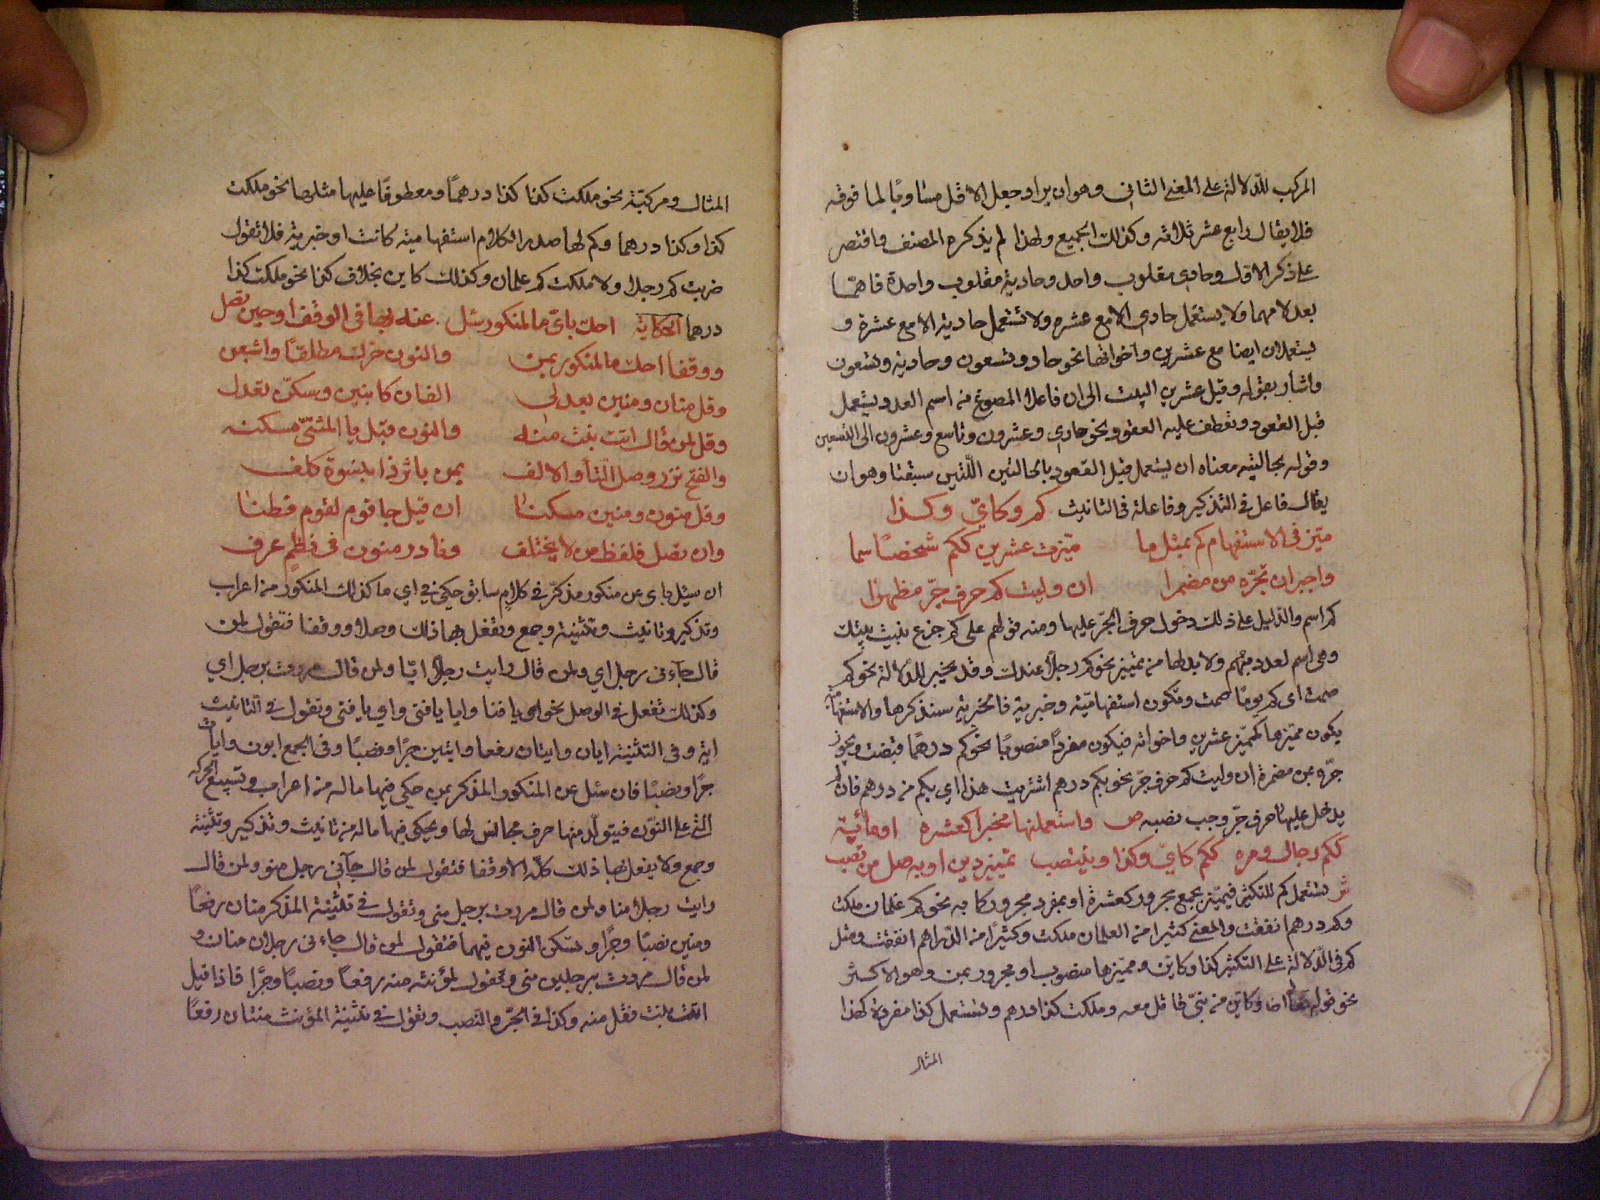 المركب للدلالة على المعنى الثاني وهو ان يراد جعل الاقل مساويا لما فوقه
فلا يقال رابع عشر ثلاثه وكذلك الجميع ولهذا لم يذكره المصنف واقتصر
على ذكر الاول وحادي مقلوب واحد وحادية مقلوب واحدة فاهما
بعد لامهما ولا يستعمل حادي الا مع عشر ولا تستعمل حادية الا مع عشرة و
يستعملان ايضا مع عشرين واخواتها نحو حاد وتسعون وحادية وتسعون
واشار بقوله وقبل عشرين البيت الى ان فاعلا المصوغ من اسم العدد يستعمل
قبل العقود وتعطف عليه العقود نحو حادي وعشرون وتاسع وعشرون الى التسعين
وقوله بحالتيه معناه ان يستعمل قبل العقود بالحالتين اللتين سبقتا وهو ان
يقال فاعل في التذكير وفاعلة في التانيث كم وكايّ وكذا
ميّز في الاستفهام كم بمثل ما ميّزت عشرين ككم شخصًا سما
واجز ان تجرّه من مضمرا ان وليت كم حرف جرّ مظهرا
كم اسم والدليل على ذلك دخول حرف الجرّ عليها ومنه قولهم على كم جزع بنيت بيتك
وهي اسم لعدد مبهم ولا بد لها من تمييز نحو كم رجلا عندك وقد للدلالة نحو كم
صمت اي كم يومًا صمت وتكون استفهاميّة وخبرية فالخبرية سنذكرها والاستفهامية
يكون مميزها كمميز عشرين واخواته فيكون مفردًا منصوبًا نحو كم درهمًا قبضت ويجوز
جرّه بمن مضمرة ان وليت كم حرف جرّ نحو بكم درهم اشتريت هذا اي بكم من درهم فان لم
يدخل عليها حرف جرّ وجب نصبه ص واستعملنها مخبرا كعشره او مائية
ككم رجال ومره ككم كايّ وكذا وينتصب تمييز ذين او به صل من تصب
ش تستعمل كم للتكثير فيميز بجمع مجرور كعشرة او بمفرد مجرور كمايه نحو كم غلمان ملكت
وكم درهم انفقت والمعنى كثيرا من الغلمان ملكت وكثيرًا من الدراهم انفقت ومثل
كم في الدلالة على التكثير كذا وكاين ومميزها منصوب او مجرور بمن وهو الاكثر
نحو قوله وكاين من نبيّ قاتل معه وملكت كذا درهم وتستعمل كذا مفردة كهذا
المثال
المثال ومركبّة نحو ملكت كذا كذا درهمًا ومعطوفًا عليها مثلها نحو ملكت
كذا وكذا درهما وكم لها صدر الكلام استفهامية كانت او خبرية فلا تقول
ضربت كم رجلا ولا ملكت كم غلمان وكذلك كاين بخلاف كذا نحو ملكت كذا
درهما الحكاية احك بايّ ما لمنكور سئل عنه بها في الوقف او حين تصل
ووقفا احك ما لمنكور بمن والنون حرك مطلقًا واشبعن
وقل منان ومنين بعد لي الفان كابنين وسكن تعدل
وقل لمن قال اتت بنت منه والنون قبل يا المثنّى مسكنه
والفتح نزر وصل التا والالف بمن باثر ذا بنسوة كلف
وقل منون ومنين مسكنا ان قيل جا قوم لقوم فطنا
وان تصل فلفظ من لا يختلف ونادر منون في نظم عرف
ان سئل باي عن منكور مذكر في كلام سابق حكي في اي ما كذلك المنكور من اعراب
وتذكير وتانيث وتثنية وجمع وتفعل بها ذلك وصلا ووقفا فتقول لمن
قال جاءنى رجل اي ولمن قال رايت رجلًا ايّا ولمن قال مررت برجل اي
وكذلك تفعل في الوصل نحو اي يا فتا وايا يا فتى واي يا فتى وتقول في التانيث
اية وفي التثنية ايان وايتان رفعا وايين وايتين جرًا ونصبًا وفي الجمع ايون وايات
جرًا ونصبًا فان سئل عن المنكور المذكر بمن حكي فيها ما له من اعراب وتشبع الحركه
التي على النون فيتولد منها حرف مجانس لها ويحكى فيها ما له من تانيث وتذكير وتثنية
وجمع ولا يفعل بها ذلك كلّه الا وقفا فتقول لمن قال جآني رجل منو ولمن قال
رايت رجلا منا ولمن قال مررت برجل مني وتقول في تثنية المذكر منان رفعًا
ومنين نصبًا وجرًا وتسكن النون فيهما فتقول لمن قال جاءنى رجلان منان و
لمن قال مررت برجلين منين وتقول لمؤنثه منه رفعًا ونصبًا وجرًّا فاذا قيل
اتت بنت فقل منه وكذا في الجرّ والنصب وتقول في تثنية المؤنث منتان رفعًا